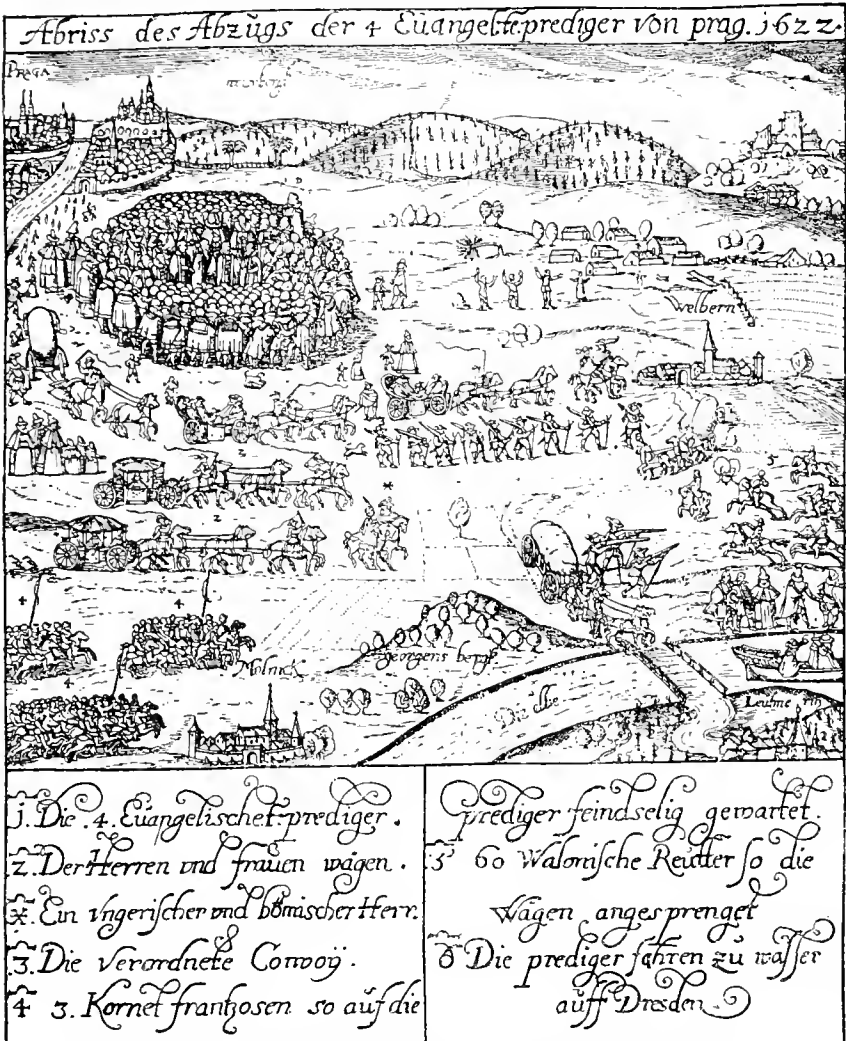 Abriss des Abzugs der 4 Euangelte prediger von prag. 1622.
PRAGA
Welbern
Molnick
georgens berg
Die elbe
Leutme ritz
1. Die .4. Euangelische t. prediger.
2. Der Herren vnd frauen wägen.
*. Ein vngerischer vnd bömischer Herr.
3. Die verordnete Convoÿ.
4 3. Kornet frantzosen so auf die
prediger feindselig gewartet.
5 60 Walonische Reutter so die
wägen angesprenget
6 Die prediger fahren zu wasser
auff Dresden